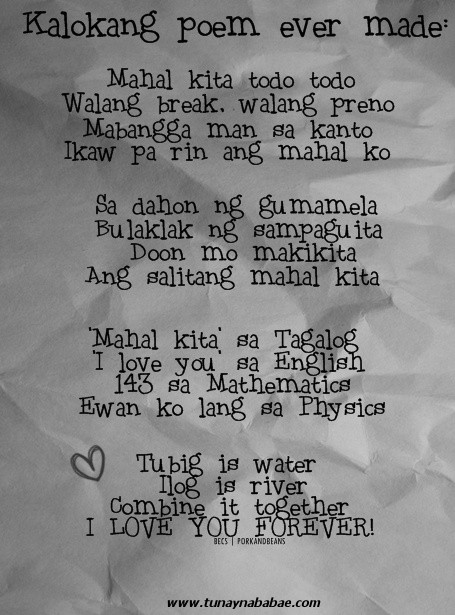 Kalokang poem ever made:
Mahal kita todo todo
Walang break. walang preno
Mabangga man sa kanto
Ikaw pa rin ang mahal ko
Sa dahon ng gumamela
Bulaklak ng sampaguita
Doon mo makikita
Ang salitang mahal kita
'Mahal kita' sa Tagalog
'I love you' sa English
143 sa Mathematics
Ewan ko lang sa Physics
Tubig is water
Ilog is river
Combine it together
I LOVE YOU FOREVER!
BECS | PORKANDBEANS
www.tunaynababae.com